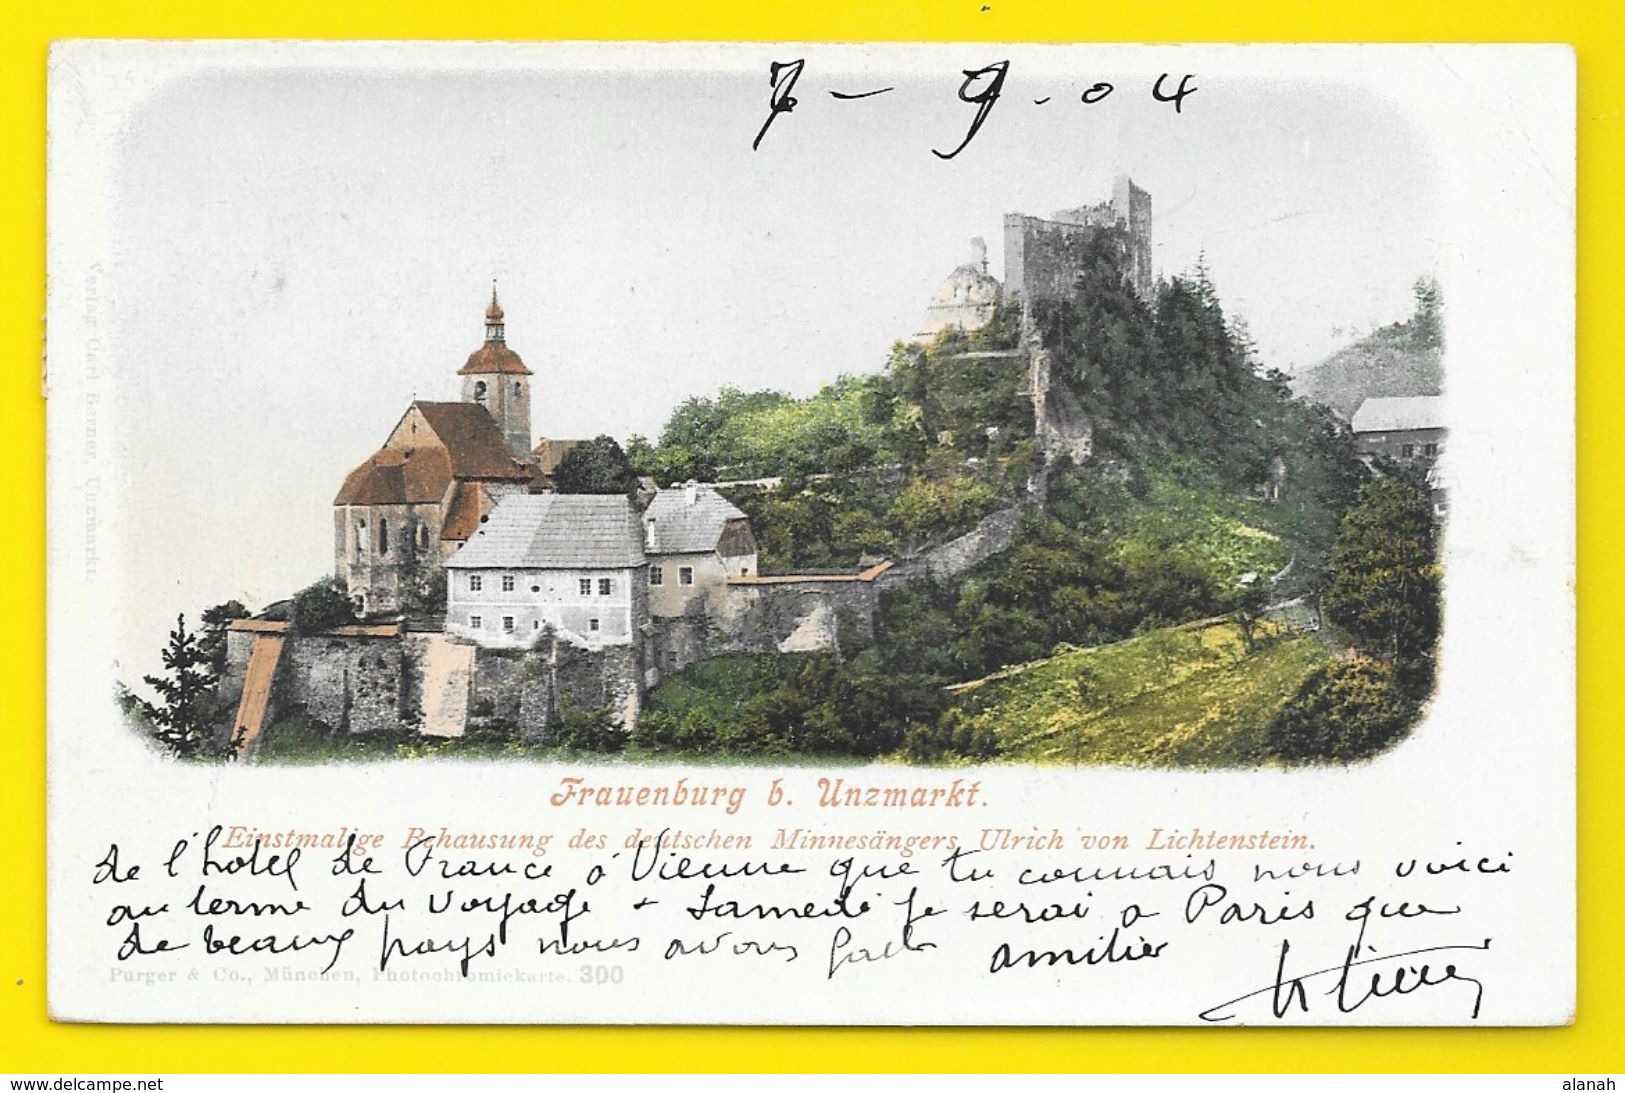 7 - 9 - 04
Verlag Carl Berner, Unzmarkt.
Frauenburg b. Unzmarkt.
Einstmalige Behausung des deutschen Minnesängers Ulrich von Lichtenstein.
de l'hotel de France à Vienne que tu connais nous voici
au terme du voyage - Samedi je serai à Paris que
de beaux pays nous avons amitiés
Purger & Co., München, Photochromiekarte. 300
www.delcampe.net
alanah